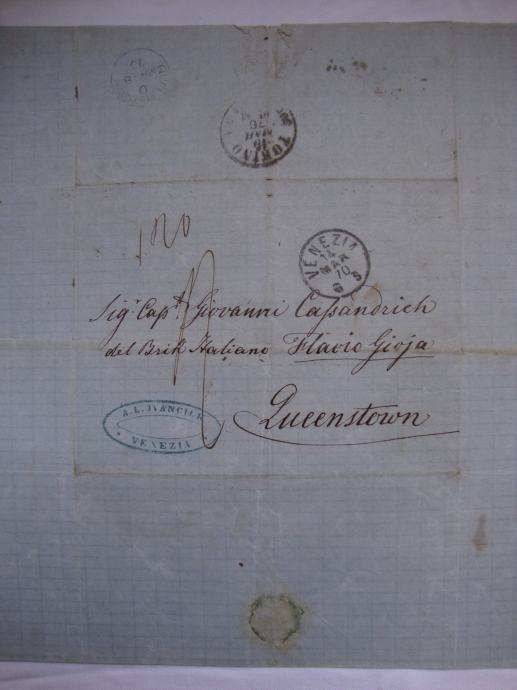 TORINO
15
MAR
70
120
VENEZIA
14
MAR
70
6 S
Sig.r Cap.t Giovanni Cassandrich
del Brik Italiano Flavio Gioja
Queenstown
A. L. IVANCICH
VENEZIA